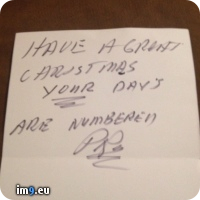 HAVE A GREAT
CHRISTMAS
YOUR DAYS
ARE NUMBERED
im9.eu